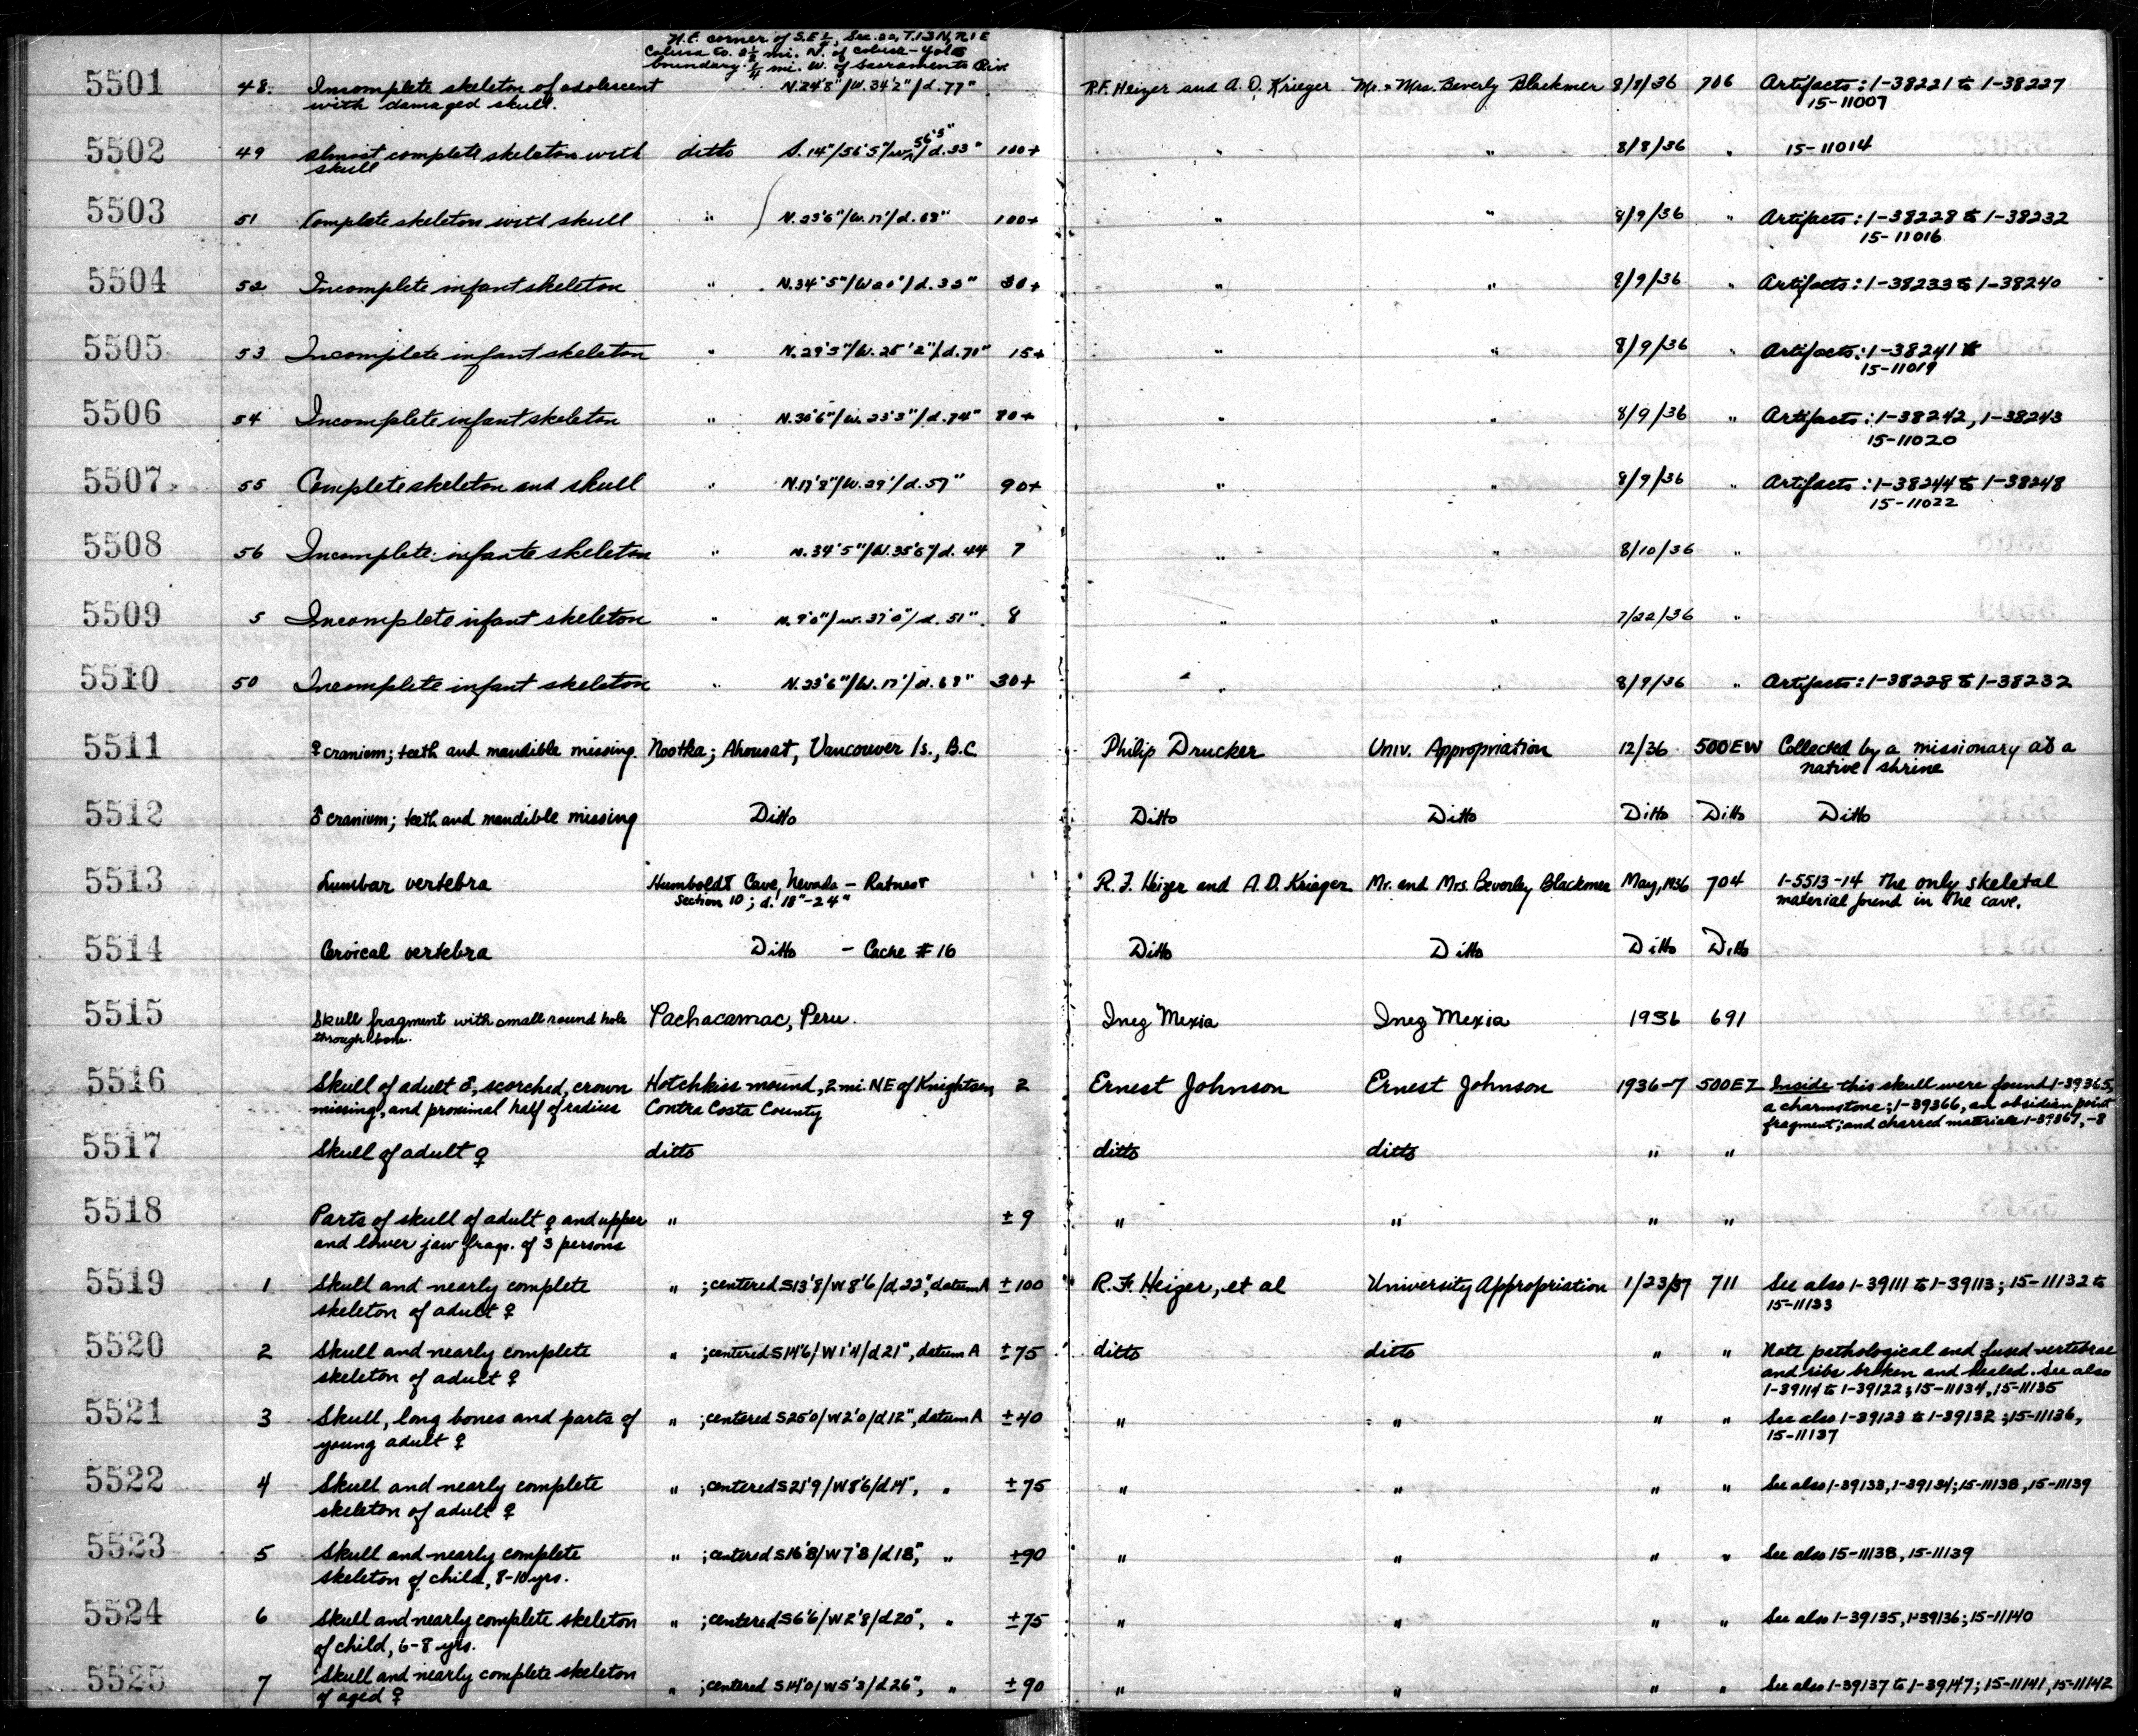 N.E. corner of S.E ½, Sec. 20, T.13N, R1E
Colusa Co. 2½ mi. N. of Colusa-Yolo
boundary. ¼ mi. W. of Sacramento Riv.
5501 48. Incomplete skeleton of adolescent N.24'8"/W.34'2"/d.77" R.F. Heizer and A.D. Krieger Mr. & Mrs. Beverly Blackmer 8/8/36 706 Artifacts: 1-38221 to 1-38227
with damaged skull. 15-11007
5502 49 almost complete skeleton with ditto d.33" 100+ " " 8/8/36 " 15-11014
skull
5503 51 Complete skeleton with skull " N.23'6"/W.17'/d.68" 100+ " " 8/9/36 " Artifacts: 1-38228 to 1-38232
15-11016
5504 52 Incomplete infant skeleton " N.34'5"/W20'/d.33" 30+ " " 8/9/36 " Artifacts: 1-38233 to 1-38240
5505 53 Incomplete infant skeleton " N.29'5"/W.25'2"/d.70" 15+ " " 8/9/36 " Artifacts: 1-38241
15-11019
5506 54 Incomplete infant skeleton " N.30'6"/W.23'3"/d.74" 80+ " " 8/9/36 " Artifacts: 1-38242, 1-38243
15-11020
5507 55 Complete skeleton and skull " N.17'8"/W.29'/d.57" 90+ " " 8/9/36 " Artifacts: 1-38244 to 1-38248
15-11022
5508 56 Incomplete infante skeleton " N.34'5"/W.35'6"/d.44 7 " " 8/10/36 "
5509 5 Incomplete infant skeleton " N.9'0"/W.37'0"/d.51". 8 " " 7/22/36 "
5510 50 Incomplete infant skeleton " N.23'6"/W.17'/d.68" 30+ " " 8/9/36 " Artifacts: 1-38228 to 1-38232
5511 ♀ cranium; teeth and mandible missing. Nootka; Ahousat, Vancouver Is., B.C. Philip Drucker Univ. Appropriation 12/36 500EW Collected by a missionary at a
native shrine
5512 ♂ cranium; teeth and mandible missing Ditto Ditto Ditto Ditto Ditto Ditto
5513 Lumbar vertebra Humboldt Cave, Nevada - Ratnest R.F. Heizer and A.D. Krieger Mr. and Mrs. Beverly Blackmer May, 1936 704 1-5513-14 The only skeletal
Section 10; d. 18"-24" material found in the cave.
5514 Cervical vertebra Ditto - Cache #16 Ditto Ditto Ditto Ditto
5515 Skull fragment with small round hole Pachacamac, Peru. Inez Mexia Inez Mexia 1936 691
through bone.
5516 Skull of adult ♂, scorched, crown Hotchkiss mound, 2 mi. NE of Knightsen, 2 Ernest Johnson Ernest Johnson 1936-7 500EZ Inside this skull were found 1-39365,
missing, and proximal half of radius Contra Costa County a charmstone; 1-39366, an obsidian point
fragment; and charred materials 1-39367,-8
5517 Skull of adult ♀ ditto ditto ditto " "
5518 Parts of skull of adult ♀ and upper " ±9 " " " "
and lower jaw frags. of 3 persons
5519 1 Skull and nearly complete " ; centered S13'8/W8'6/d22", datum A ±100 R.F. Heizer, et al University Appropriation 1/23/37 711 See also 1-39111 to 1-39113; 15-11132 to
skeleton of adult ♀ 15-11133
5520 2 Skull and nearly complete " ; centered S14'6/W1'4/d21", datum A ±75 ditto ditto " " Note pathological and fused vertebrae
skeleton of adult ♀ and ribs broken and healed. See also
1-39114 to 1-39122; 15-11134, 15-11135
5521 3 Skull, long bones and parts of " ; centered S25'0/W2'0/d12", datum A ±40 " " " " See also 1-39123 to 1-39132; 15-11136,
young adult ♀ 15-11137
5522 4 Skull and nearly complete " ; centered S21'9/W8'6/d14", " ±75 " " " " See also 1-39133, 1-39134; 15-11138, 15-11139
skeleton of adult ♀
5523 5 Skull and nearly complete " ; centered S16'8/W7'8/d18", " ±90 " " " " See also 15-11138, 15-11139
skeleton of child, 8-10 yrs.
5524 6 Skull and nearly complete skeleton " ; centered S6'6/W2'8/d20", " ±75 " " " " See also 1-39135, 1-39136; 15-11140
of child, 6-8 yrs.
5525 7 Skull and nearly complete skeleton " ; centered S14'0/W5'3/d26", " ±90 " " " " See also 1-39137 to 1-39147; 15-11141, 15-11142
of aged ♀